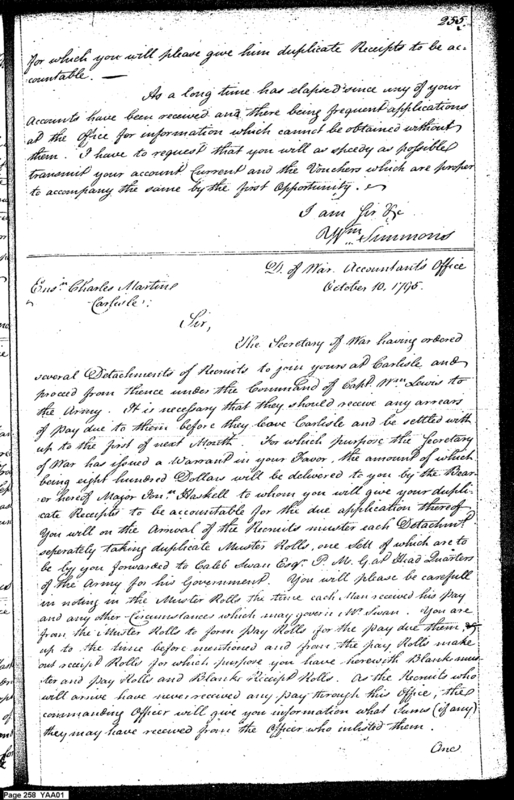 255.
for which you will please give him duplicate Receipts to be ac-
countable. —
As a long time has elapsed since any of your
Accounts have been received and there being frequent applications
at the Office for information which cannot be obtained without
them. I have to request that you will as speedy as possible
transmit your account Current and the Vouchers which are proper
to accompany the same by the first Opportunity.
I am Sir &c
Wm. Simmons
D. of War. Accountant's Office
October 10. 1795.
Ensn. Charles Martin
Carlisle
Sir,
The Secretary of War having ordered
several Detachments of Recruits to join yours at Carlisle and
proceed from thence under the Command of Capt. Wm. Lewis to
the Army. It is necessary that they should receive any arrears
of pay due to them before they leave Carlisle and be settled with
up to the first of next Month. For which purpose the Secretary
of War has issued a Warrant in your Favor, the amount of which
being eight hundred Dollars will be delivered to you by the Bear-
er hereof Major Jonn. Haskell to whom you will give your dupli-
cate Receipts to be accountable for the due application thereof
You will on the Arrival of the Recruits muster each Detachmt.
seperately taking duplicate Muster Rolls, one Sett of which are to
be by you forwarded to Caleb Swan Esqr. P. M. G. at Head Quarters
of the Army for his Government. You will please be carefull
in noting in the Muster Rolls the time each Man received his pay
and any other Circumstances which may govern Mr. Swan. You are
from the Muster Rolls to form Pay Rolls for the pay due them
up to the time before mentioned and from the pay Rolls make
out receipt Rolls for which purpose you have herewith Blank mus-
ter and pay Rolls and Blank Receipt Rolls. As the Recruits who
will arrive have never received any pay through this Office, the
commanding Officer will give you information what Sums (if any)
they may have received from the Officer who inlisted them.
One
Page 258 YAA01